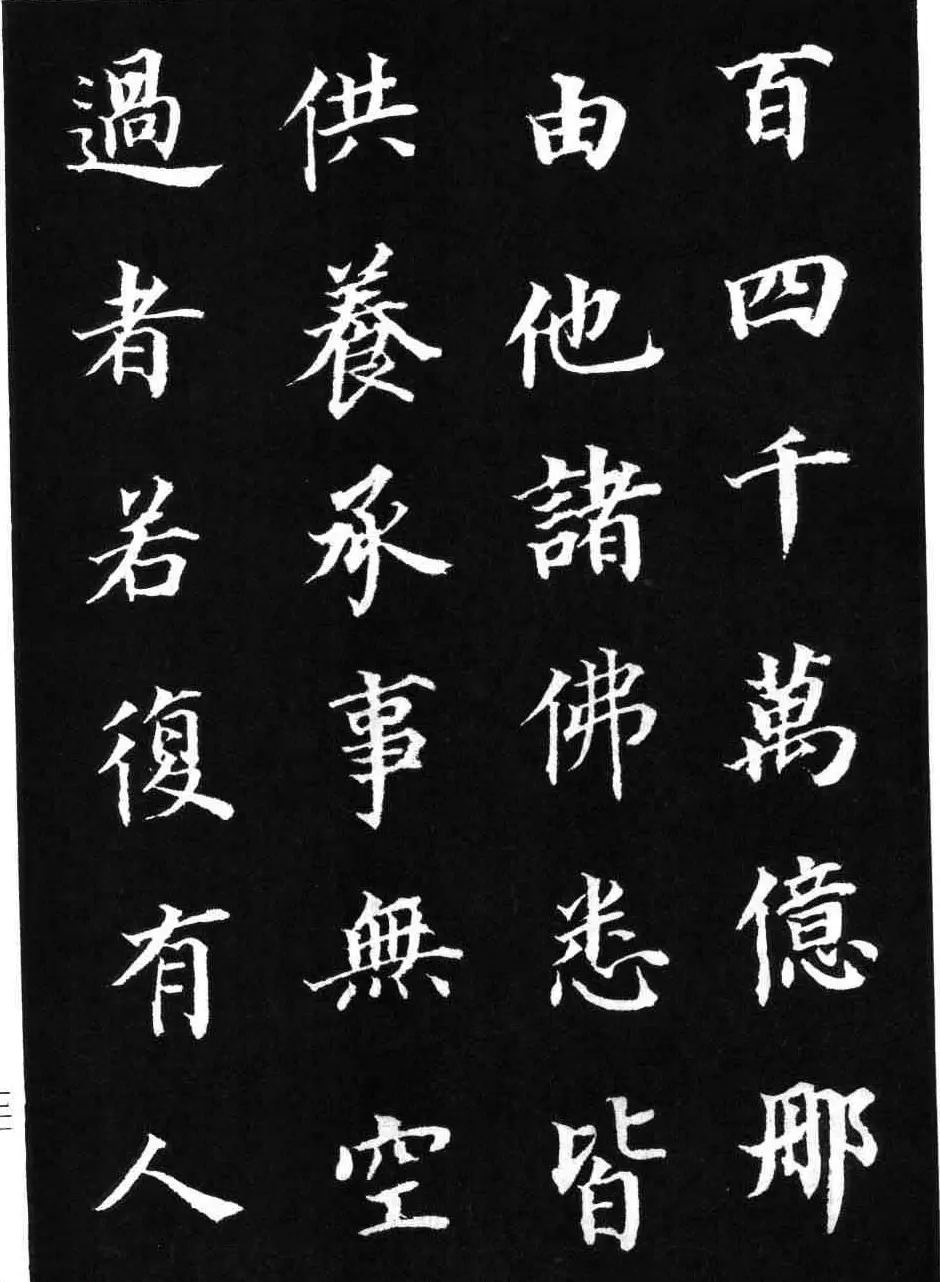 百四千萬億那
由他諸佛悉皆
供養承事無空
過者若復有人